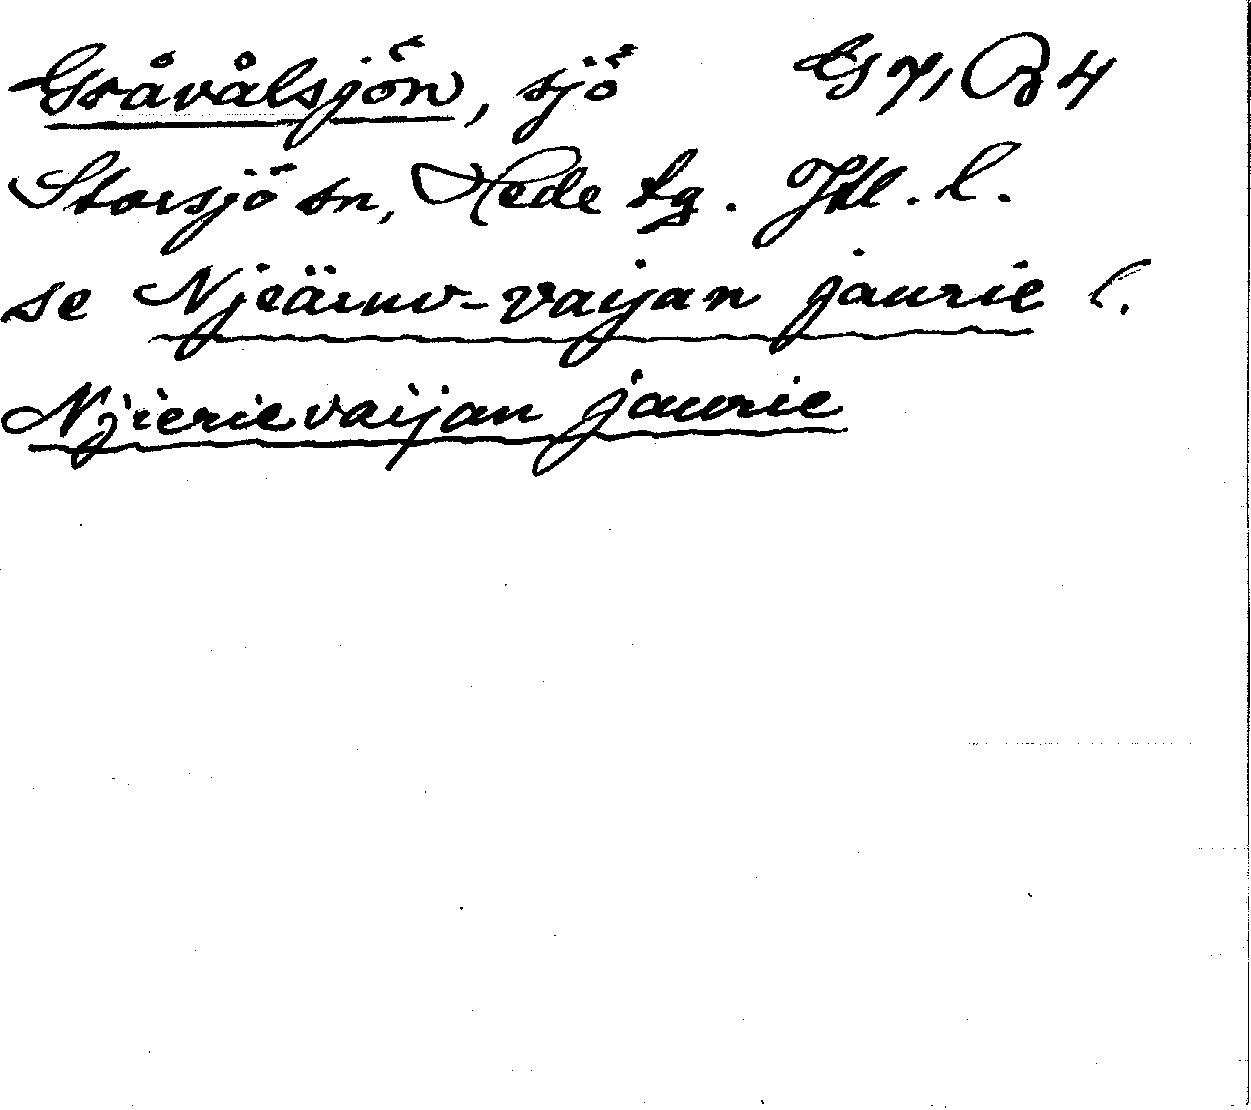 Gråvålsjön, sjö G 7, B 4
Storsjö sn, Hede tg. Jtl. l.
se Njeäruv-vaijan jaurie l.
Njierievaijan jaurie